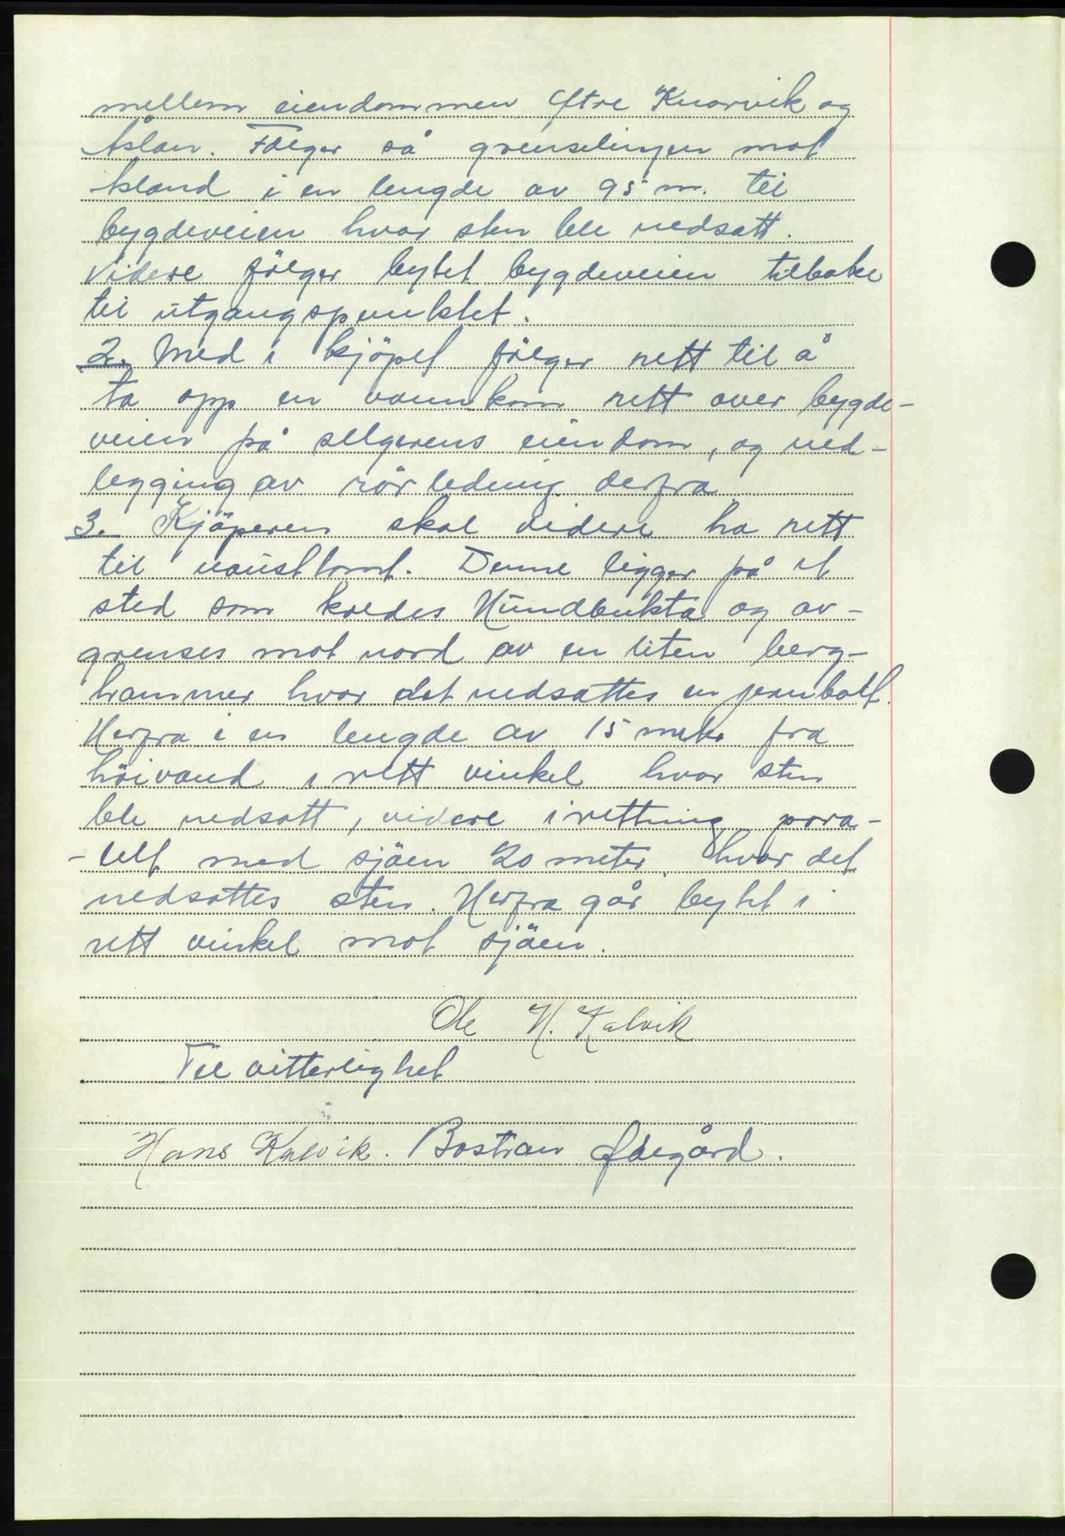 mellem eiendommen Øtre Knarvik og
Åslan. Fölger så grenselinjen mot
Åsland i en lengde av 95 m. til
bygdeveien hvor sten ble nedsatt.
Videre fölger bytet bygdeveien tilbake
til utgangspunktet.
2. Med i kjöpet fölger rett til å
ta opp en vannkom rett over bygde-
veien på selgerens eiendom, og ned-
legging av rörledning derfra
3. Kjöperen skal videre ha rett
til nausttomt. Denne ligger på et
sted som kaldes Hundbukta og av-
grenses mot nord av en liten berg-
hammer hvor det nedsattes en jernbolt.
Herfra i en lengde av 15 meter fra
höivand i rett vinkel hvor sten
ble nedsatt, videre i retning para-
-lelt med sjöen 20 meter hvor det
nedsattes sten. Herfra går bytet i
rett vinkel mot sjöen.
Ole H. Kalvik
Til vitterlighet
Hans Kalvik. Bastian Ødegård.